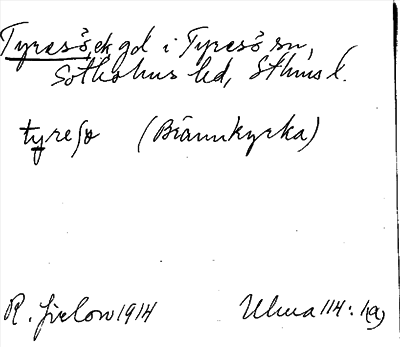 Tyresö, ek gd i Tyresö sn,
Sotholms hd, Sthms l.
tyresø (Brännkyrka)
R. Jirlow 1914 Ulma 114:1(a)